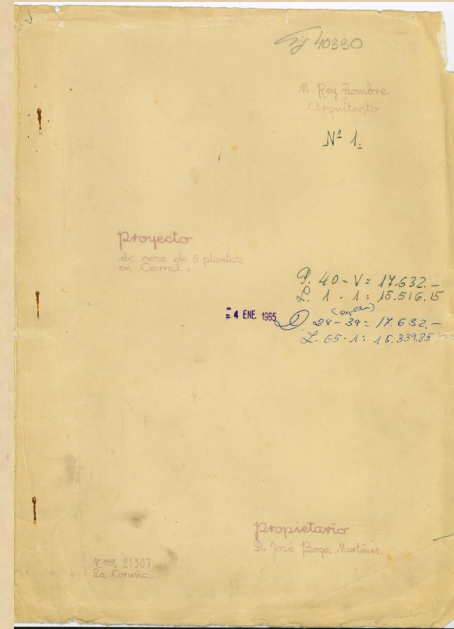 40330
M. Rey Pombre
Arquitecto
Nº 1.
Proyecto
de casa de 5 plantas
en Carral.
P. 40 - V = 17.632.-
L. 1 - 1 = 15.516.15
= 4 ENE 1965
28 - 39 = 17.632.-
L. 65 - 1 = 15.339.85
Propietario
D. José Boga Martínez
21307
La Coruña